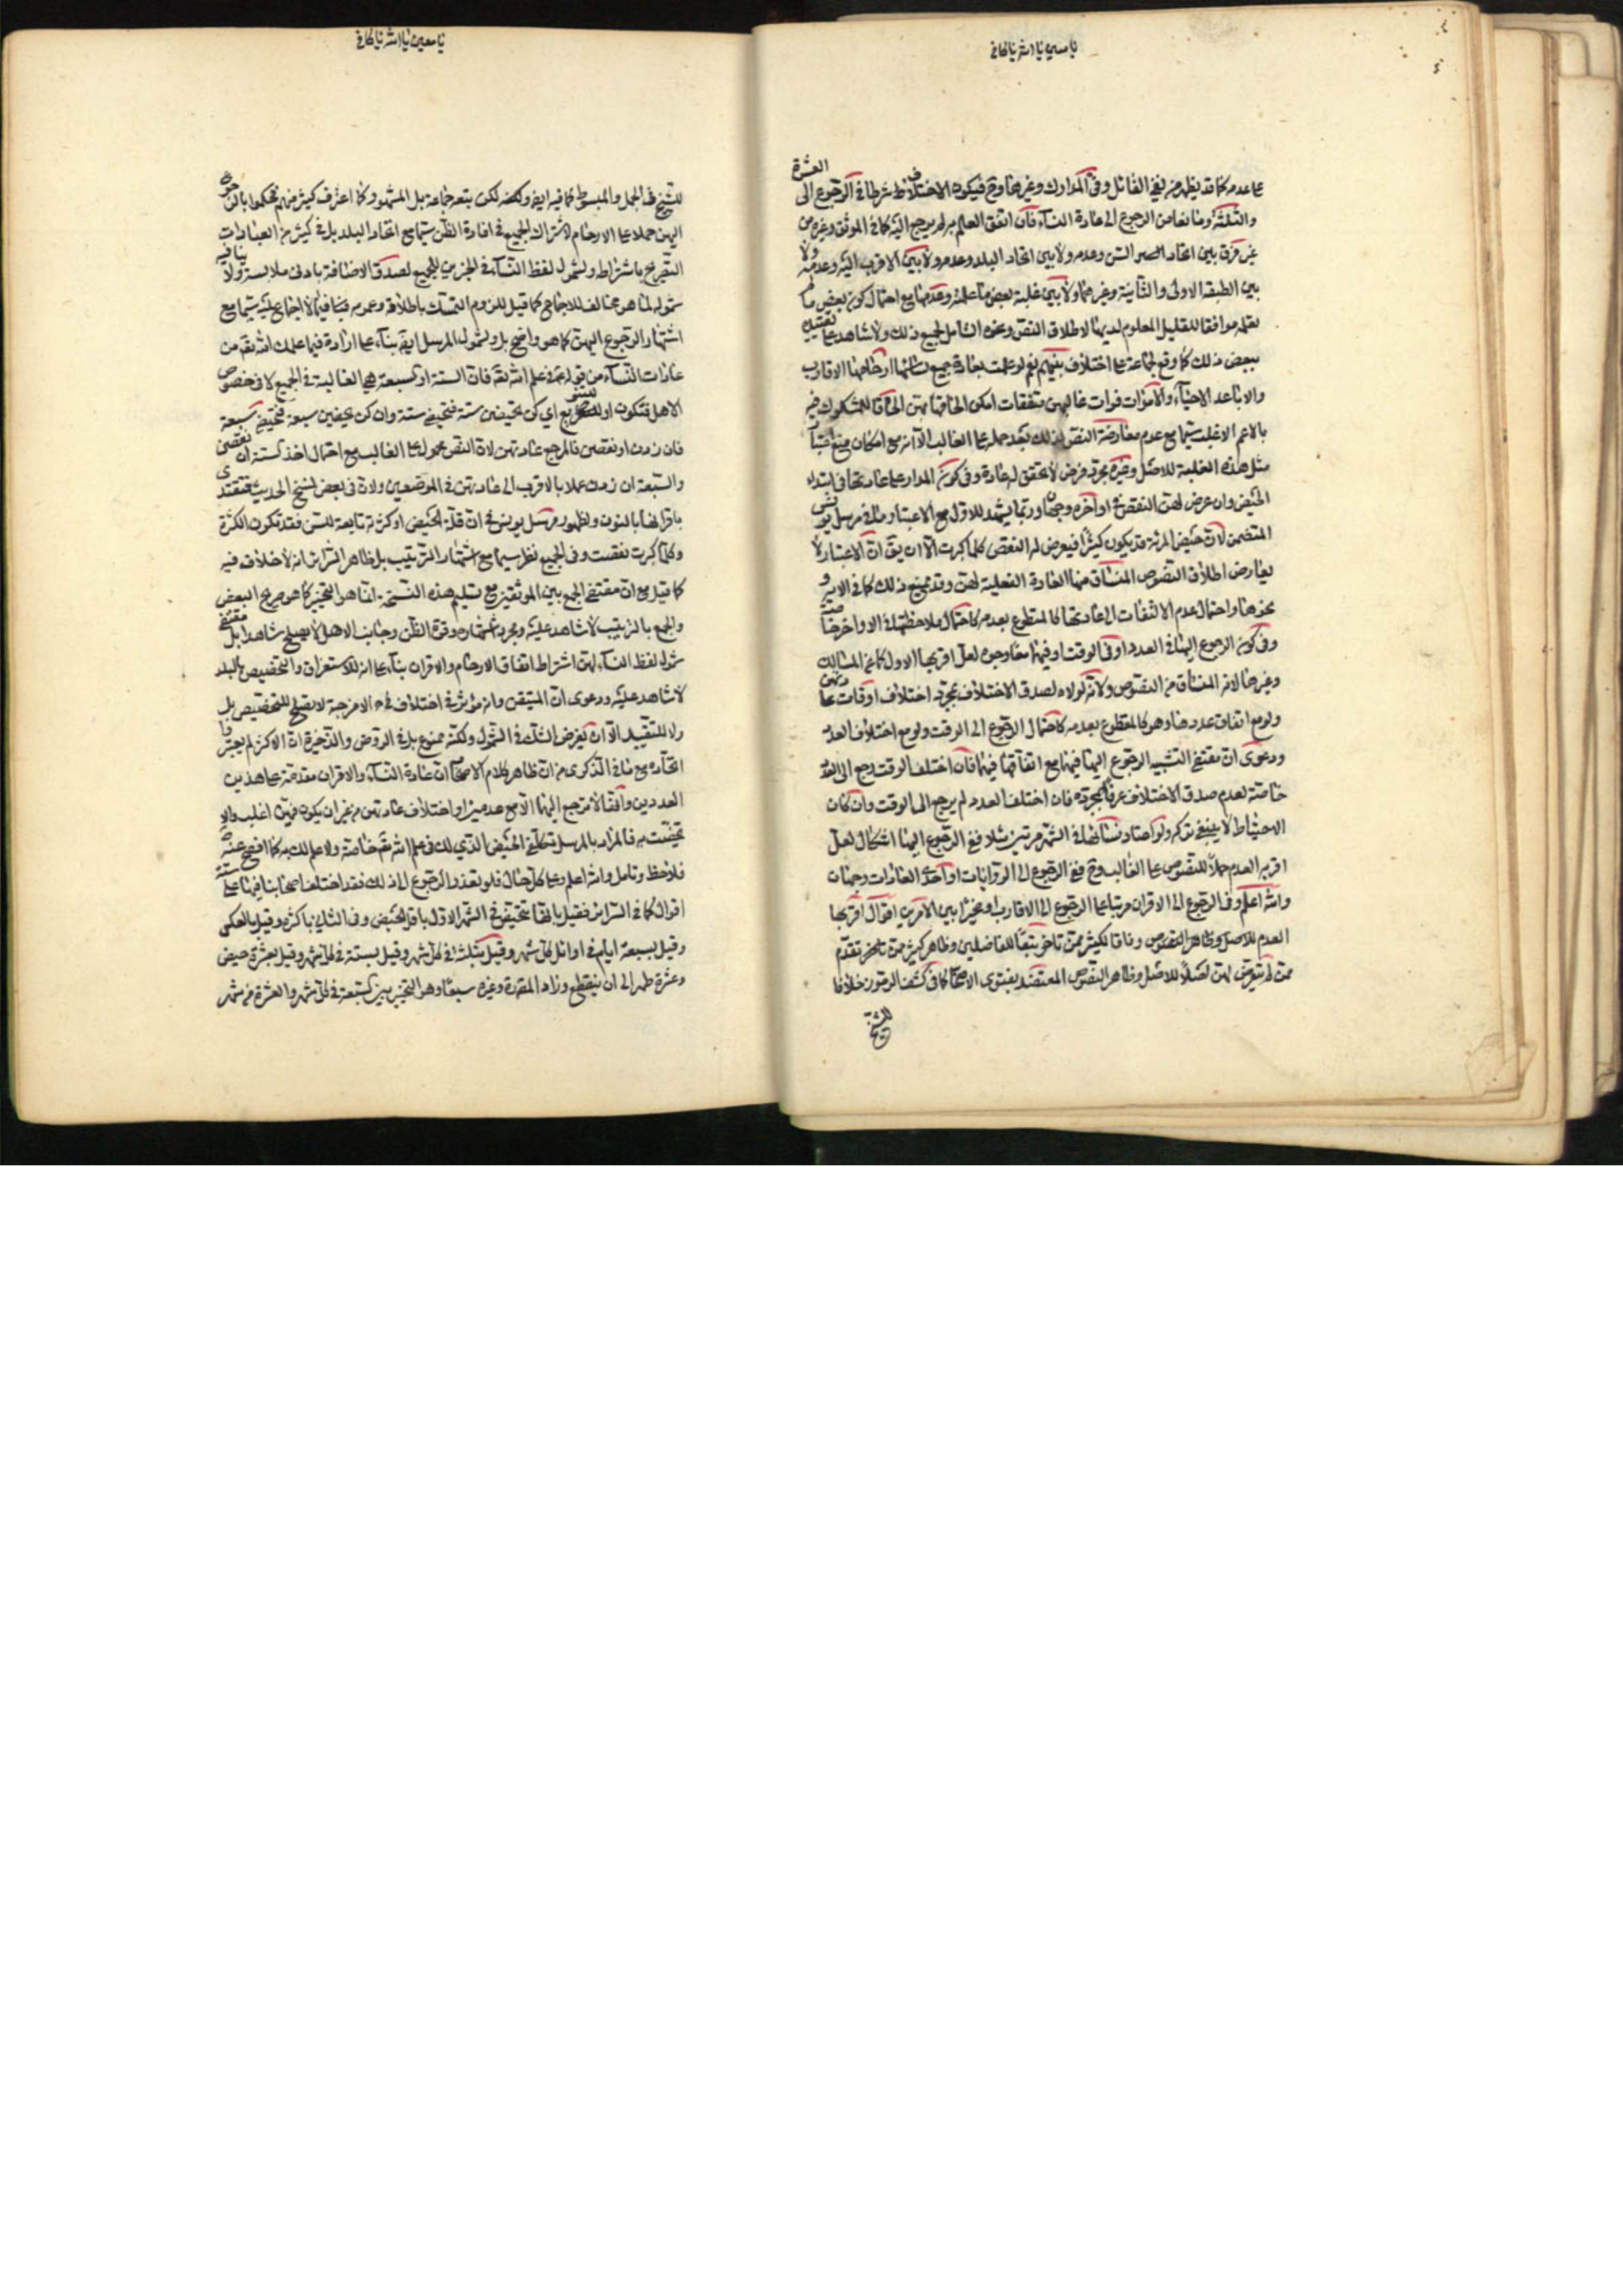 العشرة
على عدمه كما قد يظهر من بقي القائل وفي المدارك وغيرها وح فيكون الاختلاف شرطا في الرجوع الى
والثلثة ومانعا من الرجوع الى عادة النساء فان اتفق العلم به لم يرجع اليه كما في الموثق وغيره من
غير فرق بين اتحاد السن وعدمه ولا بين اتحاد البلد وعدمه ولا بين الاقرب اليه وعدمه ولا
بين الطبقة الاولى والثانية وغيرهما ولا بين غلبة بعض ما علمته وعدمها مع احتمال كون بعض ما لم
تعلمه موافقا للقليل المعلوم لديها لاطلاق النص وغيره الشامل لجميع ذلك ولا شاهد على تقييده
ببعض ذلك كما وقع لجماعة على اختلاف بينهم نعم لو علمت بعادة جميع نسائها ارحامها الاقارب
والاباعد الاحياء والاموات فرأت غالبهن متفقات امكن الحاقها بهن الحاقا للمشكوك فيه
بالاعم الاغلب سيما مع عدم معارضة النص لذلك بعد حمله على الغالب الا انه مع امكان منع اعتبار
مثل هذه الغلبة للاصل وغيره مجرد فرض لا تحقق له عادة وفي كون المدار على عادتها في ابتداء
الحيض وان عرض لهن النقص في اواخره وجهان وربما يشهد للاول مع الاعتبار ما في مرسل يونس
المتضمن لان حيض المرئة قد يكون كثيرا فيعرض له النقص كلما كبرت الا ان يق ان الاعتبار لا
يعارض اطلاق النصوص المنساق منها العادة الفعلية لهن وقد يمنع ذلك كما في الابر و
نحوها واحتمال عدم الالتفات الى عادتها كالمقطوع بعدمه كاحتمال ملاحظتها في الاواخر خاصة
وفي كون الرجوع اليها في العدد او في الوقت او فيهما معا وجوه لعل اقربها الاول كما عن المسالك
وغيرها لانه المنساق من النصوص ولانه لولاه لصدق الاختلاف بمجرد اختلاف اوقات عادتهن
ولو مع اتفاق عددها وهو كالمقطوع بعدمه كاحتمال الرجوع الى الوقت ولو مع اختلاف العدد
ودعوى ان مقتضى التشبيه الرجوع اليها فيهما مع اتفاقها فيهما فان اختلف الوقت رجع الى العدد
خاصة لعدم صدق الاختلاف عرفا بمجرده فان اختلف العدد لم يرجع الى الوقت وان كان
الاحتياط لا ينبغي تركه ولو اعتاد نسائها في الشهر مرتين مثلا ففي الرجوع اليها اشكال لعل
اقربه العدم حملا للنصوص على الغالب وح ففي الرجوع الى الروايات او احدى العادات وجهان
والله اعلم وفي الرجوع الى الاقران مرتبا على الرجوع الى الاقارب او مخيرا بين الامرين اقوال اقربها
العدم للاصل وظاهر النصوص وفاقا لكثير ممن تاخر تبعا للفاضلين وظاهر كثير ممن تاخر تقدم
ممن لم يتعرض لهن لاصلا للاصل وظاهر النصوص المعتضد بفتوى الاصحاب كما في كشف الرموز خلافا
للشيخ
للشيخ في الجمل والمبسوط كما فيه ايضا ولكنه لكن تبعه جماعة بل المشهور كما اعترف كثير منهم فحكموا بالرجوع
اليهن حملا على الارحام لاشتراك الجميع في افادة الظن سيما مع اتحاد البلد بل في كثير من العبادات
التصريح باشتراطه ولشمول لفظ النساء في الخبرين للجميع لصدق الاضافة بادنى ملابسة ولا ينافيه
شموله لما هو مخالف للاجماع كما قيل للزوم التمسك باطلاقه وعمومه فيما لا اجماع عليه سيما مع
اشتهار الرجوع اليهن كما هو واضح بل ولشمول المرسل ايضا بناء على ارادة فيما علمك الله تع من
عادات النساء من قوله في علم الله تع فان الستة او السبعة هي الغالبة في الجميع لا في خصوص
الاهل فتكون او للتنويع اي كن يحيضن ستة فتحيضي ستة وان كن يحيضن سبعة فتحيضي سبعة
فان زدن او نقصن فالمرجع عادتهن لان النص محمول على الغالب مع احتمال اخذ الستة ان نقصن
والسبعة ان زدن عملا بالاقرب الى عادتهن في الموضعين ولان في بعض نسخ الحديث فتقتدى
باقرائها بالنون ولظهور مرسل يونس في ان قلة الحيض او كثرته تابعة للسن فقد تكون الكثرة
وكلما كبرت نقصت وفي الجميع نظر سيما مع اشتهار الترتيب بل ظاهر السرائر انه لا خلاف فيه
كما قيل مع ان مقتضى الجمع بين الموثقين مع تسليم هذه النسخة انما هو التخيير كما هو صريح البعض
والجمع بالترتيب لا شاهد عليه ومجرد اشتهاره وقوة الظن وجانب الاهل لا يصلح شاهدا بل مقتضى
شمول لفظ النساء لهن اشتراط اتفاق الارحام والاقران بناء على انه للاستغراق والتخصيص بالبلد
لا شاهد عليه ودعوى ان المتيقن وانه مؤثر في اختلاف الامزجة لا يصلح للتخصيص بل
ولا للتقييد الا ان يفرض الشك في الشمول ولكنه ممنوع بل في الروض والذخيرة ان الاكثر لم يعتبروا
اتحاده مع ما في الذكرى من ان ظاهر كلام الاصحاب ان عادة النساء والاقران مقدمة على هذين
العددين وافقا لا ترجع اليهما الا مع عدمهن او اختلاف عادتهن من غير ان يكون فيهن اغلب والا
تحيضت به فالمراد بالمرسل تكلفي الحيض الذي لك في علم الله تع خاصة ولا علم لك به كما افصح عنه
فلاحظ وتامل والله اعلم وعلى كل حال فلو تعذر الرجوع الى ذلك فقد اختلف اصحابنا فيها على ستة
اقوال كما في السرائر فقيل بانها تتحيض في الشهر الاول باقل الحيض وفي الثاني باكثره وقيل بالعكس
وقيل بسبعة ايام في اوائل كل شهر وقيل بثلثة في كل شهر وقيل بستة في كل شهر وقيل بعشرة حيض
وعشرة طهر الى ان ينقطع وزاد المقرر وغيره سبعا وهو التخيير بين السبعة في كل شهر والعشرة في شهر